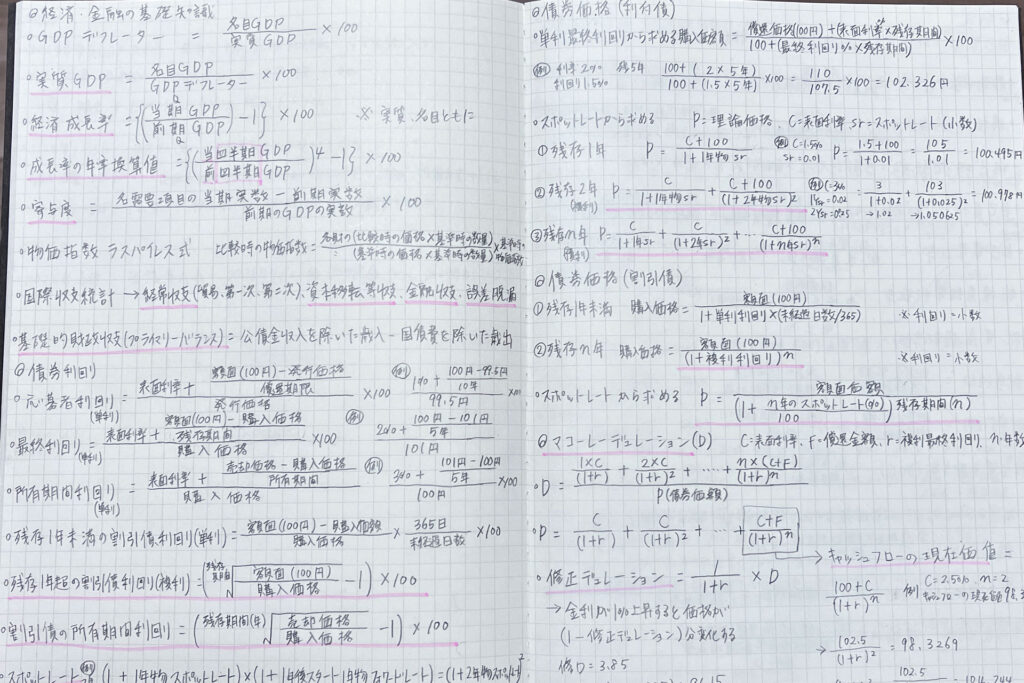 ◎経済・金融の基礎知識
・GDPデフレーター = 名目GDP/実質GDP ×100
・実質GDP = 名目GDP/GDPデフレーター ×100
・経済成長率 = {(当期GDP/前期GDP)-1} ×100 ※実質、名目ともに
・成長率の年率換算値 = {(当四半期GDP/前四半期GDP)^4 -1} ×100
・寄与度 = 各需要項目の当期実数 - 前期実数/前期のGDPの実数 ×100
・物価指数 ラスパイレス式 比較時の物価指数 = (比較時の価格×基準時の数量)/(基準時の価格×基準時の数量)
・国際収支統計 → 経常収支(貿易、第一次、第二次)、資本移転等収支、金融収支、誤差脱漏
・基礎的財政収支(プライマリーバランス) = 公債金収入を除いた歳入 - 国債費を除いた歳出
◎債券利回り
・応募者利回り(単利) = 表面利率 + 額面(100円)-発行価格/償還期限/発行価格 ×100 例 1% + 100円-99.5円/10年/99.5円 ×100
・最終利回り(単利) = 表面利率 + 額面(100円)-購入価格/残存期間/購入価格 ×100 例 2% + 100円-101円/5年/101円
・所有期間利回り(単利) = 表面利率 + 売却価格-購入価格/所有期間/購入価格 ×100 例 3% + 101円-100円/5年/100円 ×100
・残存1年未満の割引債利回り(単利) = 額面(100円)-購入価額/購入価格 × 365日/未経過日数 ×100
・残存1年超の割引債利回り(複利) = (残存期間√額面(100円)/購入価格 -1) ×100
・割引債の所有期間利回り = (残存期間(年)√売却価格/購入価格 -1) ×100
・スポットレート 例 (1+1年物スポットレート)×(1+1年後スタート1年物フォワードレート)=(1+2年物スポットレート)^2
◎債券価格(利付債)
・単利最終利回りから求める購入価額 = 償還価格(100円)+(表面利率%×残存期間)/100+(最終利回り%×残存期間) ×100
例 利率2% 残5年 利回り1.5% 100+(2×5年)/100+(1.5×5年) ×100 = 110/107.5 ×100 = 102.326円
・スポットレートから求める P=理論価格、C=表面利率、sr=スポットレート(小数)
①残存1年 P = C+100/1+1年物sr 例 C=1.5% sr=0.01 P = 1.5+100/1+0.01 = 105/1.01 = 100.495円
②残存2年(複利) P = C/1+1年物sr + C+100/(1+2年物sr)^2 例 C=3% 1Ysr=0.02 2Ysr=0.25 3/1+0.02 →1.02 + 103/(1+0.025)^2 →1.050625 = 100.978円
③残存n年(複利) P = C/1+1年sr + C/(1+2年sr)^2 + … C+100/(1+n年sr)^n
◎債券価格(割引債)
①残存1年未満 購入価格 = 額面(100円)/1+単利利回り×(未経過日数/365) ※利回り=小数
②残存n年 購入価格 = 額面(100円)/(1+複利利回り)^n ※利回り=小数
・スポットレートから求める P = 額面価額/(1 + n年のスポットレート(%)/100)残存期間(n)
◎マコーレーデュレーション(D) C=表面利率、F=償還金額、r=複利最終利回り、n=年数
・D = 1×C/(1+r) + 2×C/(1+r)^2 + … + n×(C+F)/(1+r)^n/P(債券価額)
・P = C/(1+r) + C/(1+r)^2 + … + C+F/(1+r)^n
→キャッシュフローの現在価値 =
100+C/(1+r)^n 例 C=2.50%、n=2
・修正デュレーション = 1/1+r × D
→金利が1%上昇すると価格が
(1-修正デュレーション)分変化する
→102.5/(1+r)^2 = 98.3269
修D = 3.85
102.5